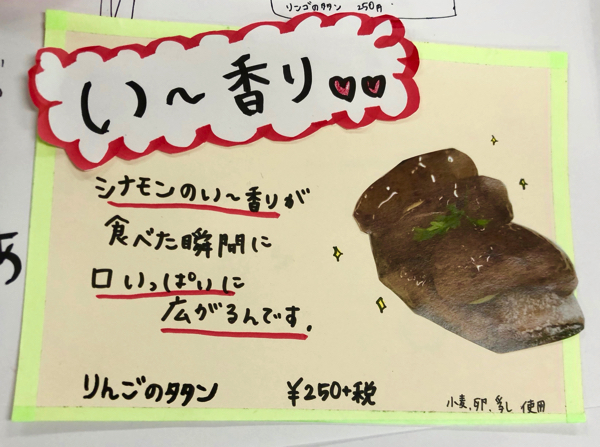 リンゴのタタン 250円
い〜香り
シナモンのい〜香りが
食べた瞬間に
口いっぱいに
広がるんです.
りんごのタタン ¥250+税
小麦,卵,乳 使用